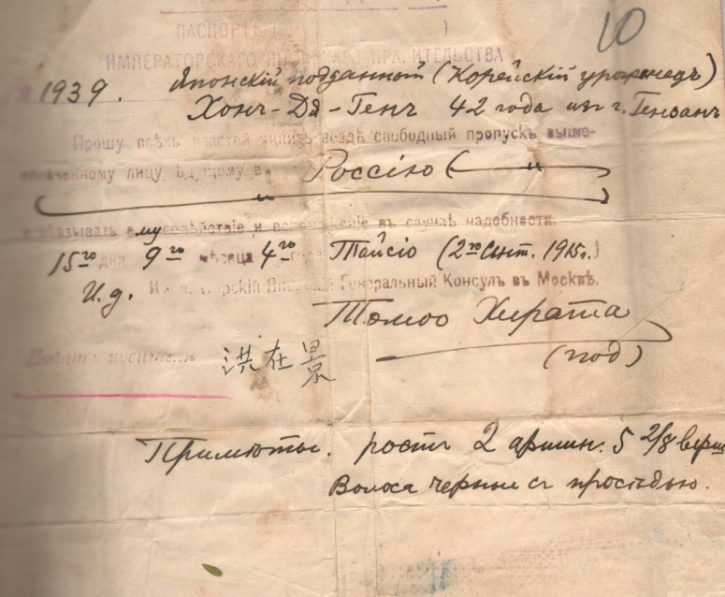 10
ПАСПОРТЪ ( )
ИМПЕРАТОРСКАГО ПРАВИТЕЛЬСТВА
№ 1939. Японскій подданный (Корейскій уроженецъ)
Хонъ-Дя-Генъ 42 года изъ г. Гензанъ
Прошу всѣхъ властей явить вездѣ свободный пропускъ выше-
означенному лицу, ѣдущему въ Россію (
и оказывать ему содѣйствіе и вспоможеніе въ случаѣ надобности.
15го дня 9го мѣсяца 4го года Тайсіо (2го Сент. 1915г.)
И.д. Императорскій Японскій Генеральный Консулъ въ Москвѣ.
Томоо Хирата
(под)
Подпись носителя 洪在景
Примѣты. ростъ 2 аршин. 5 2/8 верш
Волоса черные съ просѣдью.